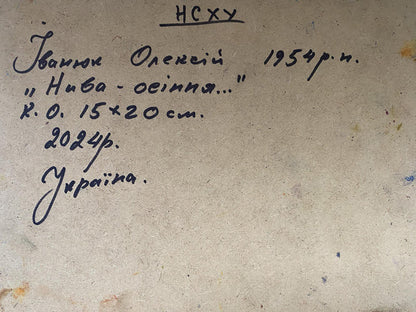 НСХУ
Іванюк Олексій 1954р.н.
„Нива - осіння..."
К.О. 15×20см.
2024р.
Україна.